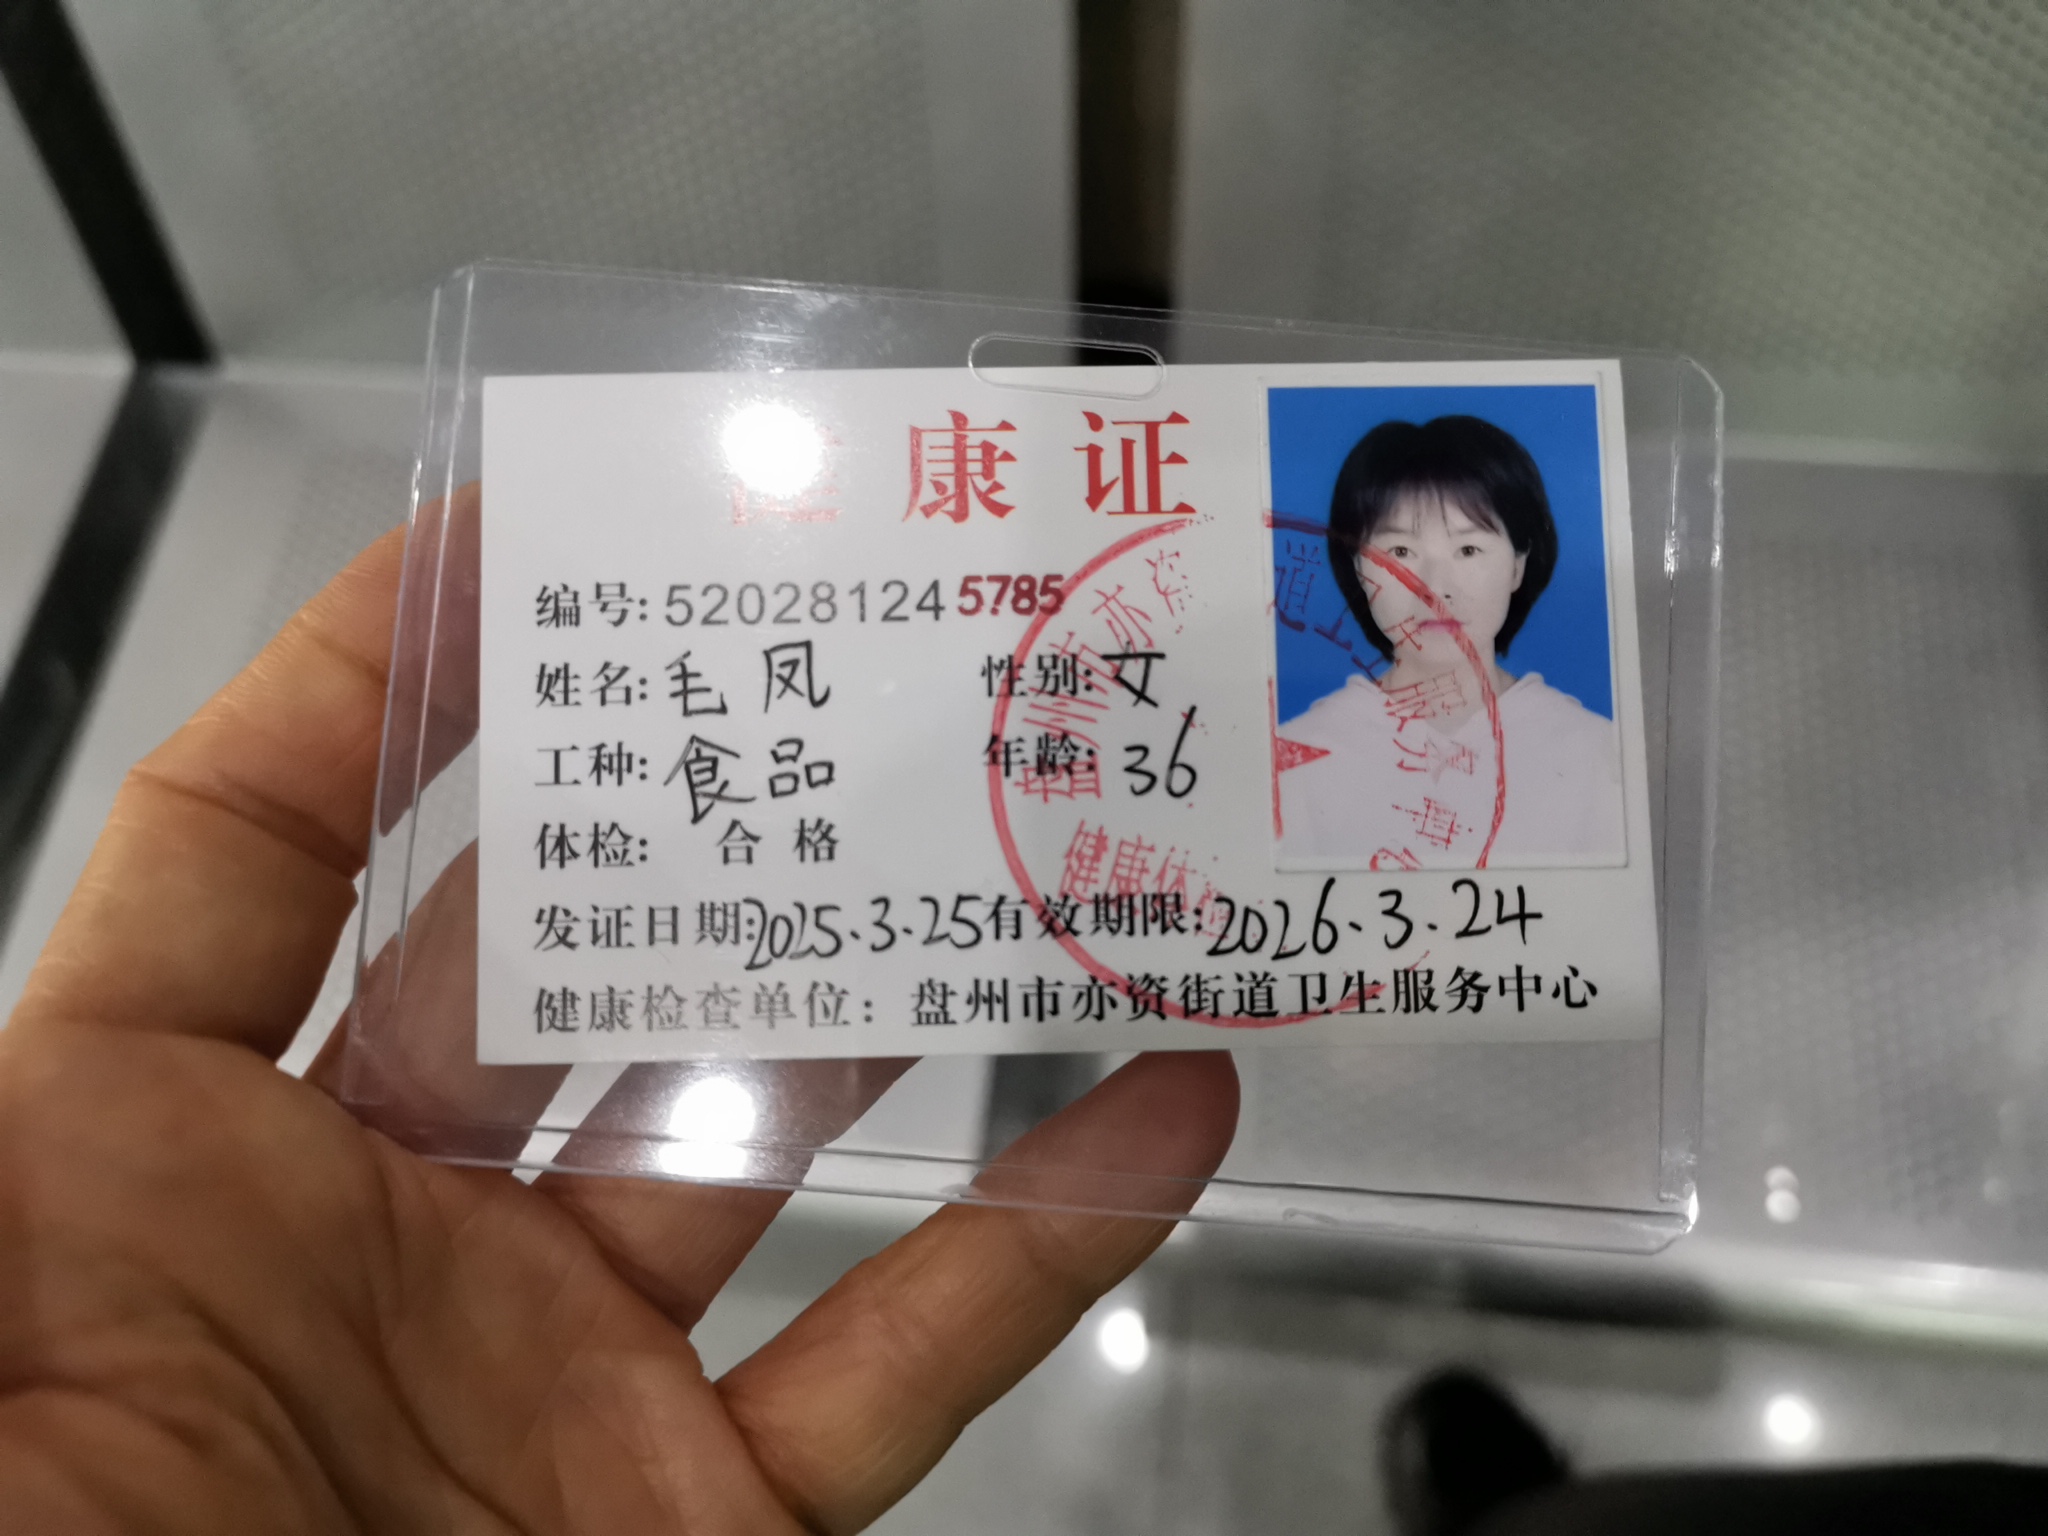 康证
编号: 520281245785
姓名: 毛凤 性别: 女
工种: 食品 年龄: 36
体检: 合格
发证日期: 2025.3.25 有效期限: 2026.3.24
健康检查单位: 盘州市亦资街道卫生服务中心
盘州市亦资 道卫生服务中心
健康体